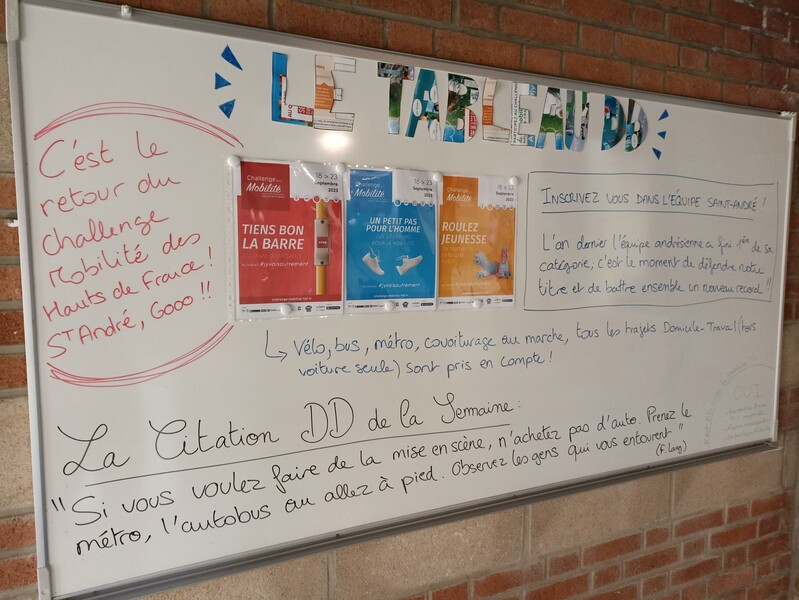 LE TABLEAUDD
C'est le
retour du
challenge
Mobilité des
Hauts de France !
St André, Gooo !!
Challenge
Mobilité
18 > 23
Septembre
2023
TIENS BON
LA BARRE
#jyvaisautrement
challenge-mobilite-hdf.fr
Challenge
Mobilité
18 > 23
Septembre
2023
UN PETIT PAS
POUR L'HOMME
#jyvaisautrement
challenge-mobilite-hdf.fr
Challenge
Mobilité
18 > 23
Septembre
2023
ROULEZ
JEUNESSE
#jyvaisautrement
INSCRIVEZ VOUS DANS L'ÉQUIPE SAINT-ANDRÉ !
L'an dernier l'équipe andrésienne a fini 1ère de sa
catégorie, c'est le moment de défendre notre
titre et de battre ensemble un nouveau record !!
↳ Vélo, bus, métro, covoiturage ou marche, tous les trajets Domicile-Travail (hors
voiture seule) sont pris en compte !
OUI
La Citation DD de la Semaine :
"Si vous voulez faire de la mise en scène, n'achetez pas d'auto. Prenez le
métro, l'autobus ou allez à pied. Observez les gens qui vous entourent"
(F. Lang)